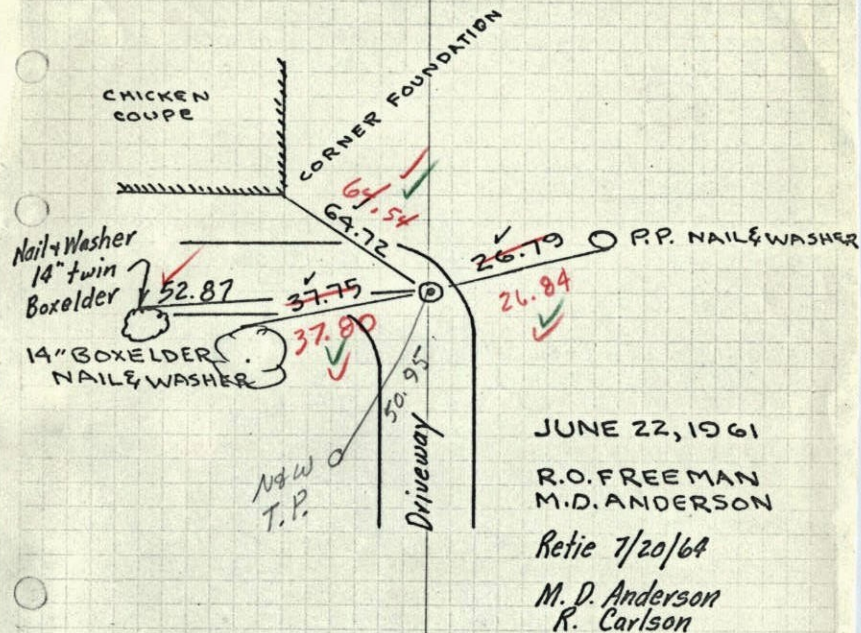 CHICKEN
COUPE
CORNER FOUNDATION
64.54
64.72
26.79
P.P. NAIL & WASHER
26.84
Nail & Washer
14" twin
Boxelder
52.87
37.75
37.80
14" BOXELDER
NAIL & WASHER
50.95
N&W
T.P.
Driveway
JUNE 22, 1961
R.O. FREEMAN
M.D. ANDERSON
Retie 7/20/64
M. D. Anderson
R. Carlson